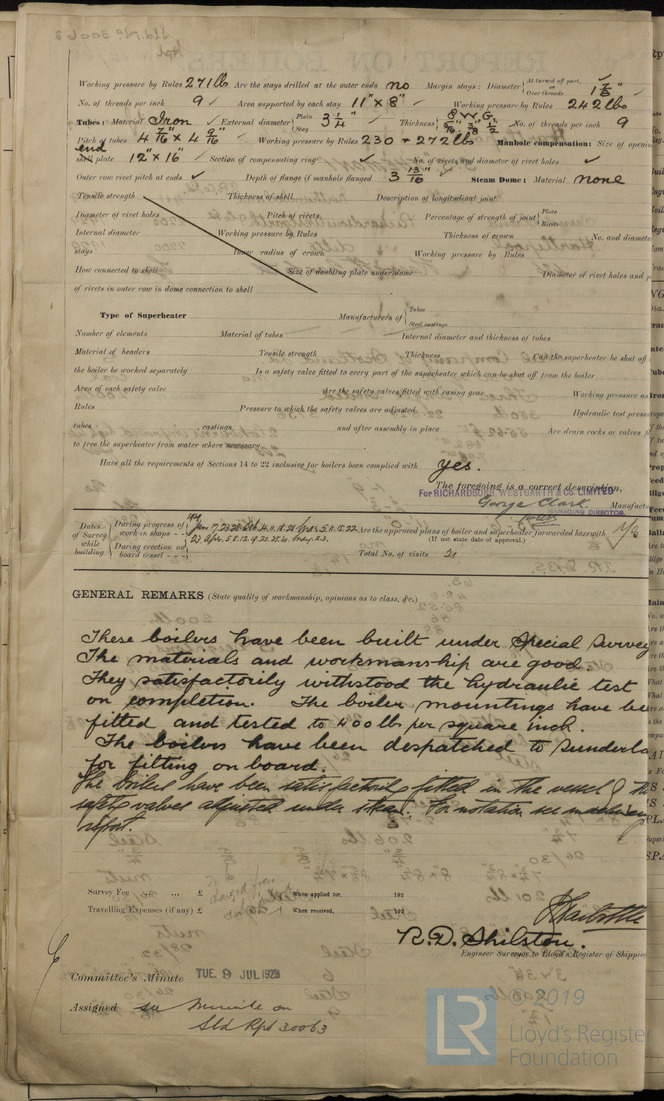 Working pressure by Rules 271 lb Are the stays drilled at the outer ends no Margin stays: Diameter { At turned off part, or Over threads 1 5/8" ✓
No. of threads per inch 9 ✓ Area supported by each stay 11" × 8" ✓ Working pressure by Rules 242 lbs
Tubes: Material Iron ✓ External diameter { Plain Stay 3 1/4" ✓ Thickness { 8 W.G. No. of threads per inch 9
Pitch of tubes 4 7/16" × 4 9/16" Working pressure by Rules 230 + 272 lbs Manhole compensation: Size of openin
end
shell plate 12" × 16" ✓ Section of compensating ring ✓ No. of rivets and diameter of rivet holes ✓
Outer row rivet pitch at ends ✓ Depth of flange if manhole flanged 3 13/16" Steam Dome: Material none
Tensile strength Thickness of shell Description of longitudinal joint
Diameter of rivet holes Pitch of rivets Percentage of strength of joint { Plate Rivets
Internal diameter Working pressure by Rules Thickness of crown No. and diamete
stays Inner radius of crown Working pressure by Rules
How connected to shell Size of doubling plate under dome Diameter of rivet holes and p
of rivets in outer row in dome connection to shell
Type of Superheater Manufacturers of { Tubes Steel castings
Number of elements Material of tubes Internal diameter and thickness of tubes
Material of headers Tensile strength Thickness Can the superheater be shut off
the boiler be worked separately Is a safety valve fitted to every part of the superheater which can be shut off from the boiler
Area of each safety valve Are the safety valves fitted with easing gear Working pressure as
Rules Pressure to which the safety valves are adjusted Hydraulic test press
tubes , castings and after assembly in place Are drain cocks or valves f
to free the superheater from water where necessary
Have all the requirements of Sections 14 to 22 inclusive for boilers been complied with yes.
The foregoing is a correct description,
For RICHARDSONS, WESTGARTH & CO. LIMITED
George Clark Manufact
MANAGING DIRECTOR.
Dates of Survey while building { During progress of work in shops - - 1929 Jan 7, 23, 28 Feb 4, 11, 18, 26 Mar 5, 11, 15, 22 Are the approved plans of boiler and superheater forwarded herewith
(If not state date of approval.)
During erection on board vessel - - - Total No. of visits 21
GENERAL REMARKS (State quality of workmanship, opinions as to class, &c.)
These boilers have been built under Special Survey
The materials and workmanship are good.
They satisfactorily withstood the hydraulic test
on completion. The boiler mountings have be
fitted and tested to 400 lb per square inch.
The boilers have been despatched to Sunderla
for fitting on board.
The boilers have been satisfactorily fitted in the vessel & the
safety valves adjusted under steam. For notation see machinery
report.
Survey Fee ... ... £ : : When applied for, 192
Travelling Expenses (if any) £ : : When received, 192
R.D. Shilston.
Engineer Surveyor to Lloyd's Register of Shipping
Committee's Minute TUE. 9 JUL 1929
Assigned see minute on
Sld Rpt 30063
LR © 2019
Lloyd's Register
Foundation